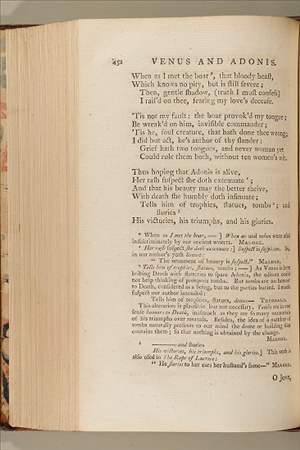 452 VENUS AND ADONIS.
When as I met the boar ⁸, that bloody beaſt,
Which knows no pity, but is ſtill ſevere;
Then, gentle ſhadow, (truth I muſt confeſs)
I rail'd on thee, fearing my love's deceaſe.
'Tis not my fault: the boar provok'd my tongue;
Be wreak'd on him, inviſible commander;
'Tis he, foul creature, that hath done thee wrong;
I did but act, he's author of thy ſlander:
Grief hath two tongues, and never woman yet
Could rule them both, without ten women's wit.
Thus hoping that Adonis is alive,
Her raſh ſuſpect ſhe doth extenuate ⁹;
And that his beauty may the better thrive,
With death ſhe humbly doth inſinuate;
Tells him of trophies, ſtatues, tombs ¹; and
ſtories ²
His victories, his triumphs, and his glories.
When as I met the boar,—] When as and when were uſed
indiſcriminately by our ancient writers. MALONE.
Her raſh ſuſpect ſhe doth extenuate;] Suſpect is ſuſpicion. So,
in our author's 70th Sonnet:
" The ornament of beauty is ſuſpect." MALONE.
Tells him of trophies, ſtatues, tombs;—] As Venus is here
bribing Death with flatteries to ſpare Adonis, the editors could
not help thinking of pompous tombs. But tombs are no honour
to Death, conſidered as a being, but to the parties buried. I much
ſuſpect our author intended:
Tells him of trophies, ſtatues, domes— THEOBALD.
This alteration is plauſible but not neceſſary. Tombs are in one
ſenſe honours to Death, inaſmuch as they are ſo many memorials
of his triumphs over mortals. Beſides, the idea of a number of
tombs naturally preſents to our mind the dome or building that
contains them; ſo that nothing is obtained by the change.
MALONE.
² —— and ſtories
His victories, his triumphs, and his glories.] This verb is
alſo uſed in The Rape of Lucrece:
" He ſtories to her ears her huſband's fame—" MALONE.
O Jove,